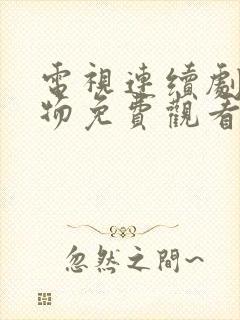 電視連續劇
物免費觀看
忽然之間~